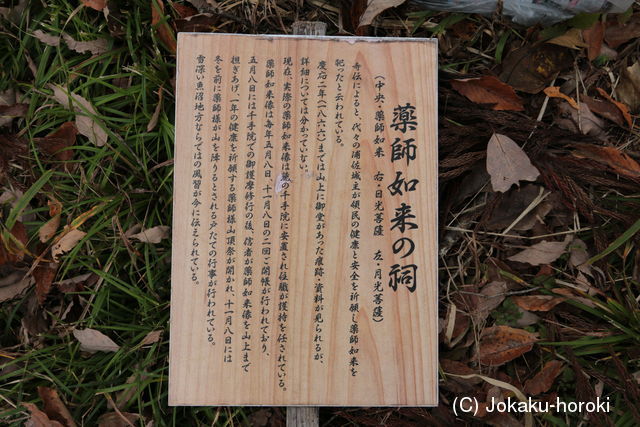 薬師如来の祠
（中央・薬師如来　右・日光菩薩　左・月光菩薩）
寺伝によると、代々の浦佐城主が領民の健康と安全を祈願し薬師如来を
祀ったと云われている。
慶応二年（一八六六）までは山上に御堂があった痕跡、資料が見られるが、
詳細については分かっていない。
現在、実際の薬師如来像は麓の千手院に安置され住職が護持を任されている。
薬師如来像は毎年五月八日、十一月八日の二回ご開帳が行われており、
五月八日には千手院での御護摩修行の後、信者が薬師如来像を山上まで
担ぎあげ、一年の健康を祈願する薬師様山頂祭が開かれ、十一月八日には
冬を前に薬師様が山を降りるとされる戸たての行事が行われている。
雪深い魚沼地方ならではの風習が今に伝えられている。
(C) Jokaku-horoki